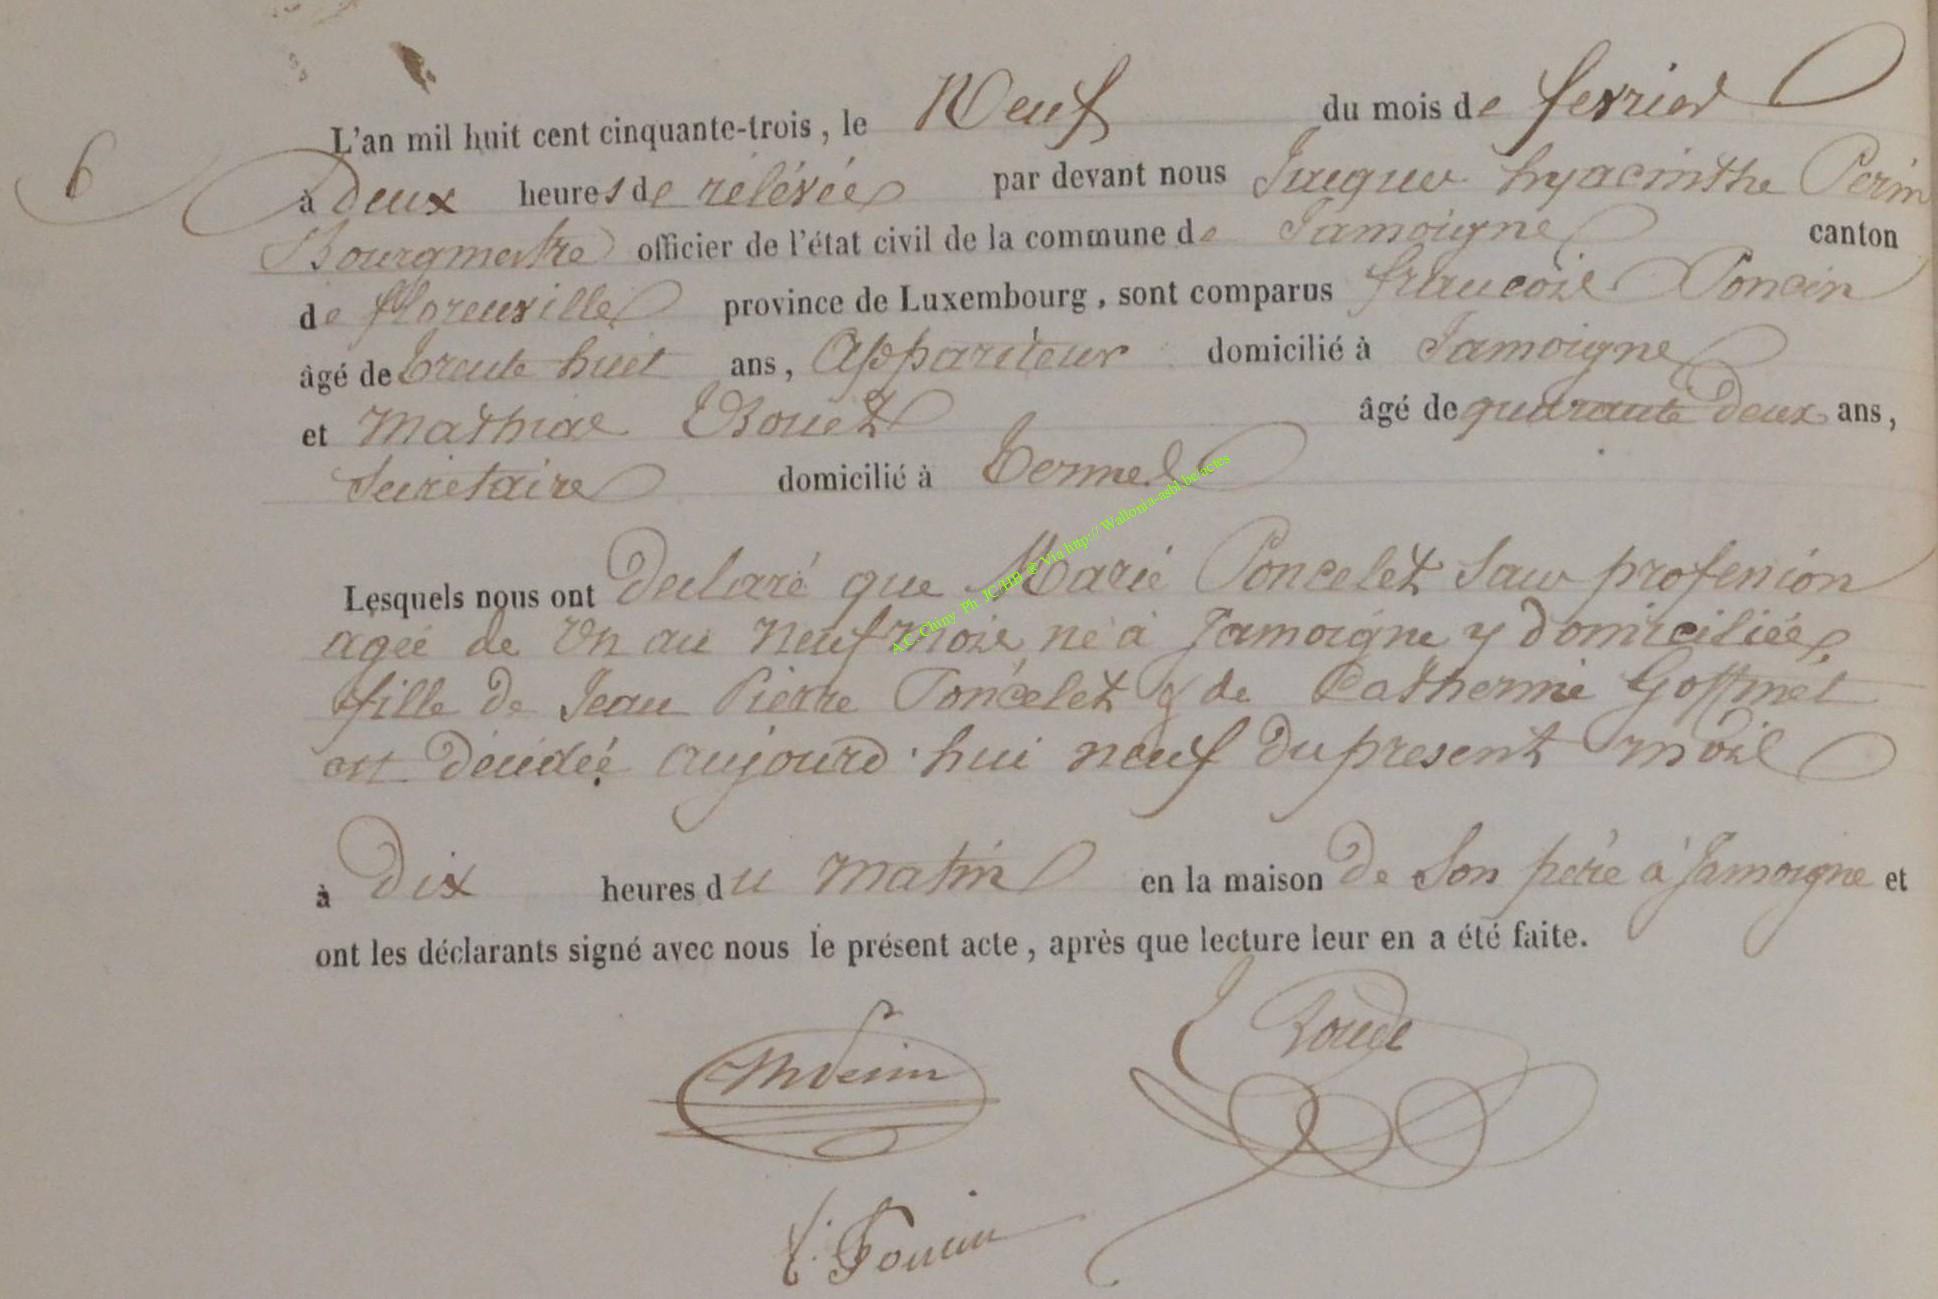 6
L'an mil huit cent cinquante-trois, le Neuf du mois de fevrier
à deux heures de rélévée par devant nous Jacques hyacinthe Perin
Bourgmestre officier de l'état civil de la commune de Jamoigne canton
de florenville province de Luxembourg, sont comparus francois Poncin
âgé de trente huit ans, Appariteur domicilié à Jamoigne
et Mathias Rouez âgé de quarante deux ans,
Secretaire domicilié à Termes
Lesquels nous ont declaré que Marie Poncelet Sans profession
agée de Un an Neuf mois, né à Jamoigne y domiciliée
fille de Jean Pierre Poncelet & de Catherine Goffinet
est décédée aujourd'hui neuf du present mois
à Dix heures du matin en la maison de Son père à Jamoigne et
ont les déclarants signé avec nous le présent acte, après que lecture leur en a été faite.
A.C. Chiny Ph JC/HB @ Via http://Wallonia-asbl.be/actes
f. Poncin